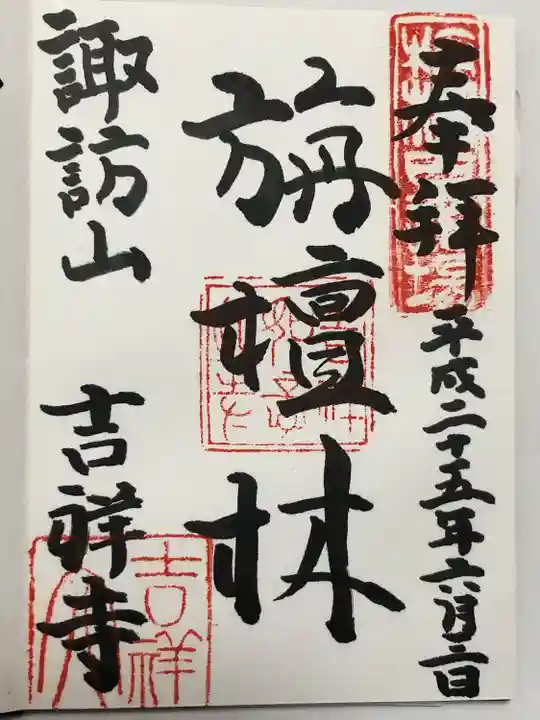 奉拝
平成二十五年六月二日
旃檀林
諏訪山 吉祥寺
吉祥